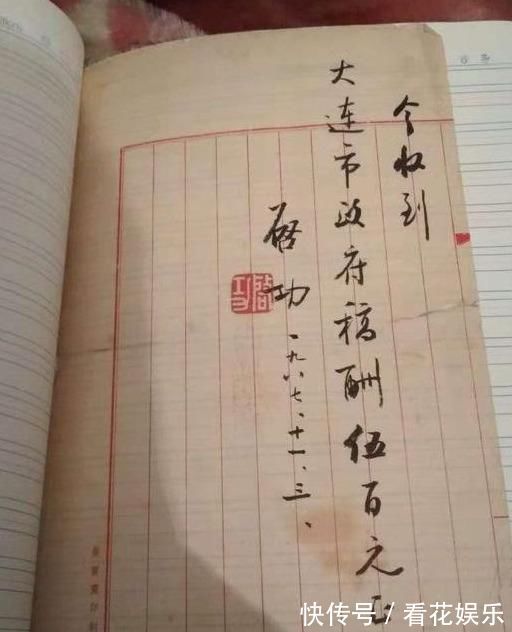 今收到
大連市政府稿酬伍百元正
啓功
一九八七、十一、三、
快传号 / 看花娱乐